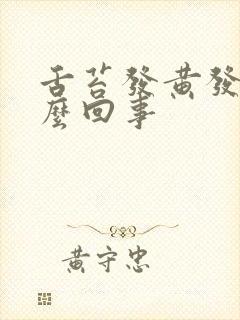 舌苔發黃發
麼回事
黃守忠